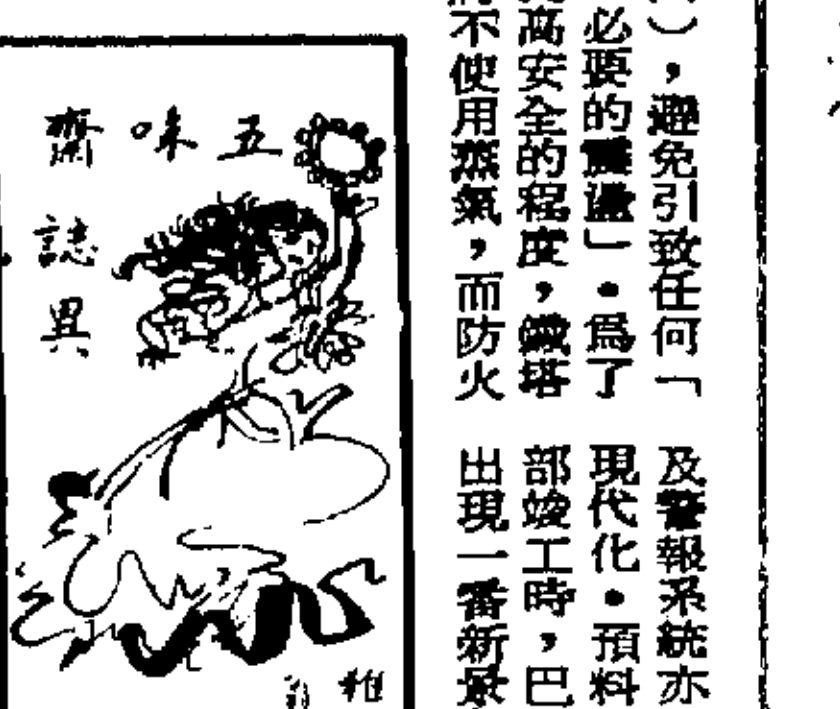 ），避免引致任何「
必要的震盪」•爲了
高安全的程度，鐵塔
不使用蒸氣，而防火
及警報系統亦
現代化•預料
部竣工時，巴
出現一番新景
五味齋
誌異